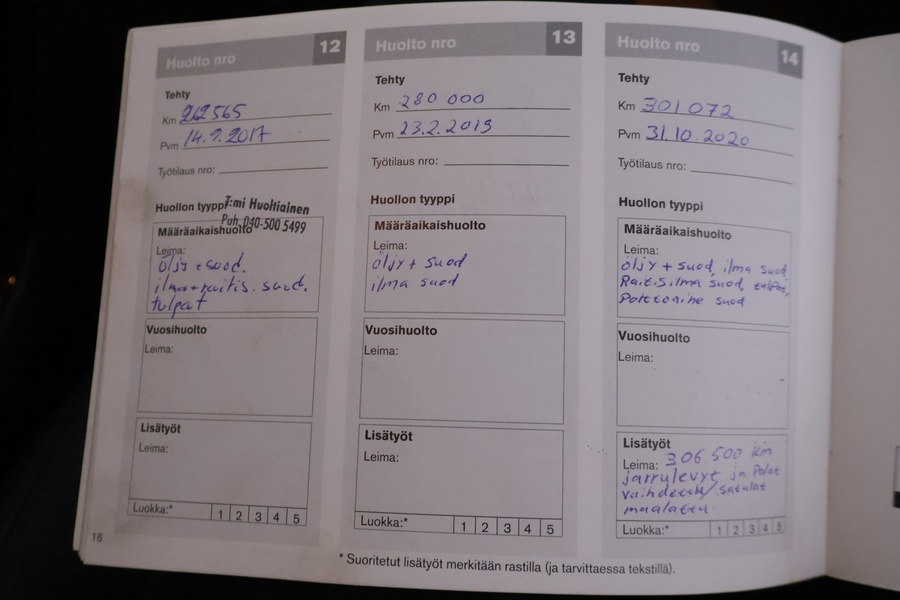 Huolto nro 12
Tehty
Km 262565
Pvm 14.9.2017
Työtilaus nro:
T:mi Huoltiainen
Puh. 040-500 5499
Huollon tyyppi
Määräaikaishuolto
Leima:
öljy + suod.
ilma+raitis. suod.
tulpat
Vuosihuolto
Leima:
Lisätyöt
Leima:
Luokka:* 1 2 3 4 5
16
Huolto nro 13
Tehty
Km 280 000
Pvm 23.2.2019
Työtilaus nro:
Huollon tyyppi
Määräaikaishuolto
Leima:
öljy + suod
ilma suod
Vuosihuolto
Leima:
Lisätyöt
Leima:
Luokka:* 1 2 3 4 5
Huolto nro 14
Tehty
Km 301 072
Pvm 31.10.2020
Työtilaus nro:
Huollon tyyppi
Määräaikaishuolto
Leima:
öljy + suod, ilma suod
Raitisilma suod, tulpat,
Polttoaine suod
Vuosihuolto
Leima:
Lisätyöt
Leima: 306 500 km
jarrulevyt ja Palat
vaihdettu/satulat
maalattu.
Luokka:* 1 2 3 4 5
* Suoritetut lisätyöt merkitään rastilla (ja tarvittaessa tekstillä).